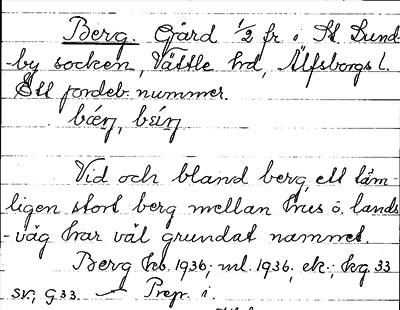 Berg. Gård 1/2 fr. i St. Lund-
by socken, Vättle hd, Älfsborgs l.
Ett jordeb. nummer.
bæŋ, béŋ
Vid och bland berg, ett täm-
ligen stort berg mellan hus o. lands-
-väg har väl grundat namnet.
Berg hb. 1936; ml. 1936, ek.; kg. 33
sv.; G 33. — Prep. i.